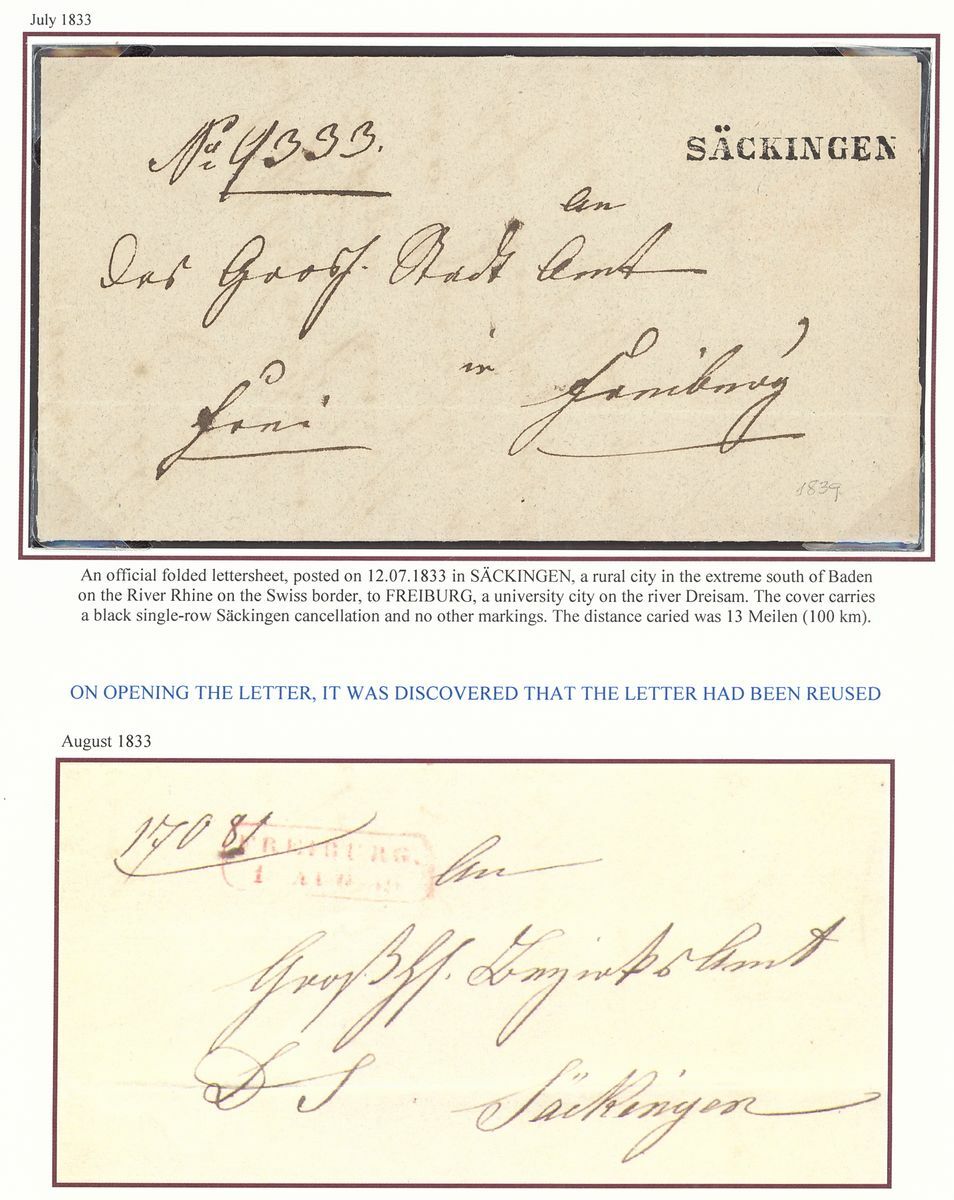 July 1833
No 9333.
SÄCKINGEN
An
Das Grosh. Stadt Amt
in Freiburg
frei
1839
An official folded lettersheet, posted on 12.07.1833 in SÄCKINGEN, a rural city in the extreme south of Baden
on the River Rhine on the Swiss border, to FREIBURG, a university city on the river Dreisam. The cover carries
a black single-row Säckingen cancellation and no other markings. The distance caried was 13 Meilen (100 km).
ON OPENING THE LETTER, IT WAS DISCOVERED THAT THE LETTER HAD BEEN REUSED
August 1833
17081
FREIBURG.
1 AUG.
An
Großhh. Bezirks Amt
D S
Säckingen